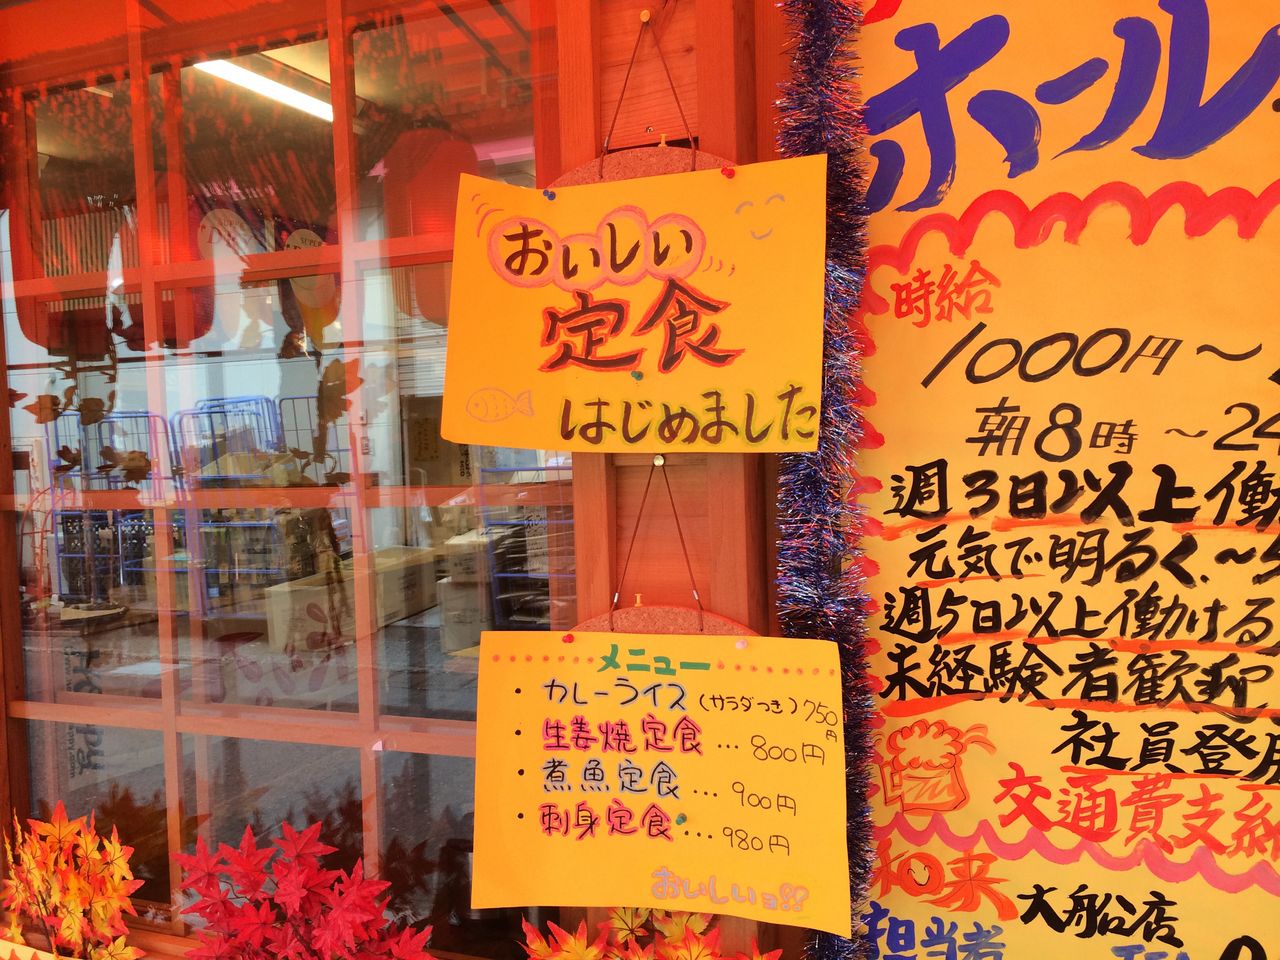 おいしい
定食
はじめました
メニュー
・カレーライス(サラダつき)750円
・生姜焼定食…800円
・煮魚定食…900円
・刺身定食…980円
おいしいョ!!
ホール
時給
1000円〜
朝8時〜24
週3日以上働
元気で明るく、〜
週5日以上働ける
未経験者歓迎
社員登用
交通費支給
和来
大船店
担当者